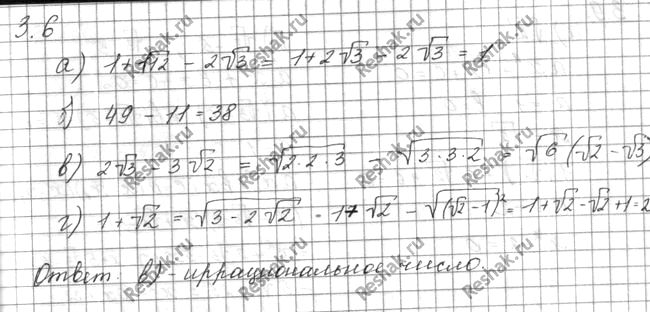 3.6
а) 1+√12 - 2√3 = 1+2√3 - 2√3 = 1
б) 49 - 11 = 38
в) 2√3 - 3√2 = √2·2·3 - √3·3·2 = √6 (√2 - √3)
г) 1+√2 = √3-2√2 - 1+√2 - √(√2-1)² = 1+√2-√2+1=2
Ответ: в) - иррациональное число.
Reshak.ru